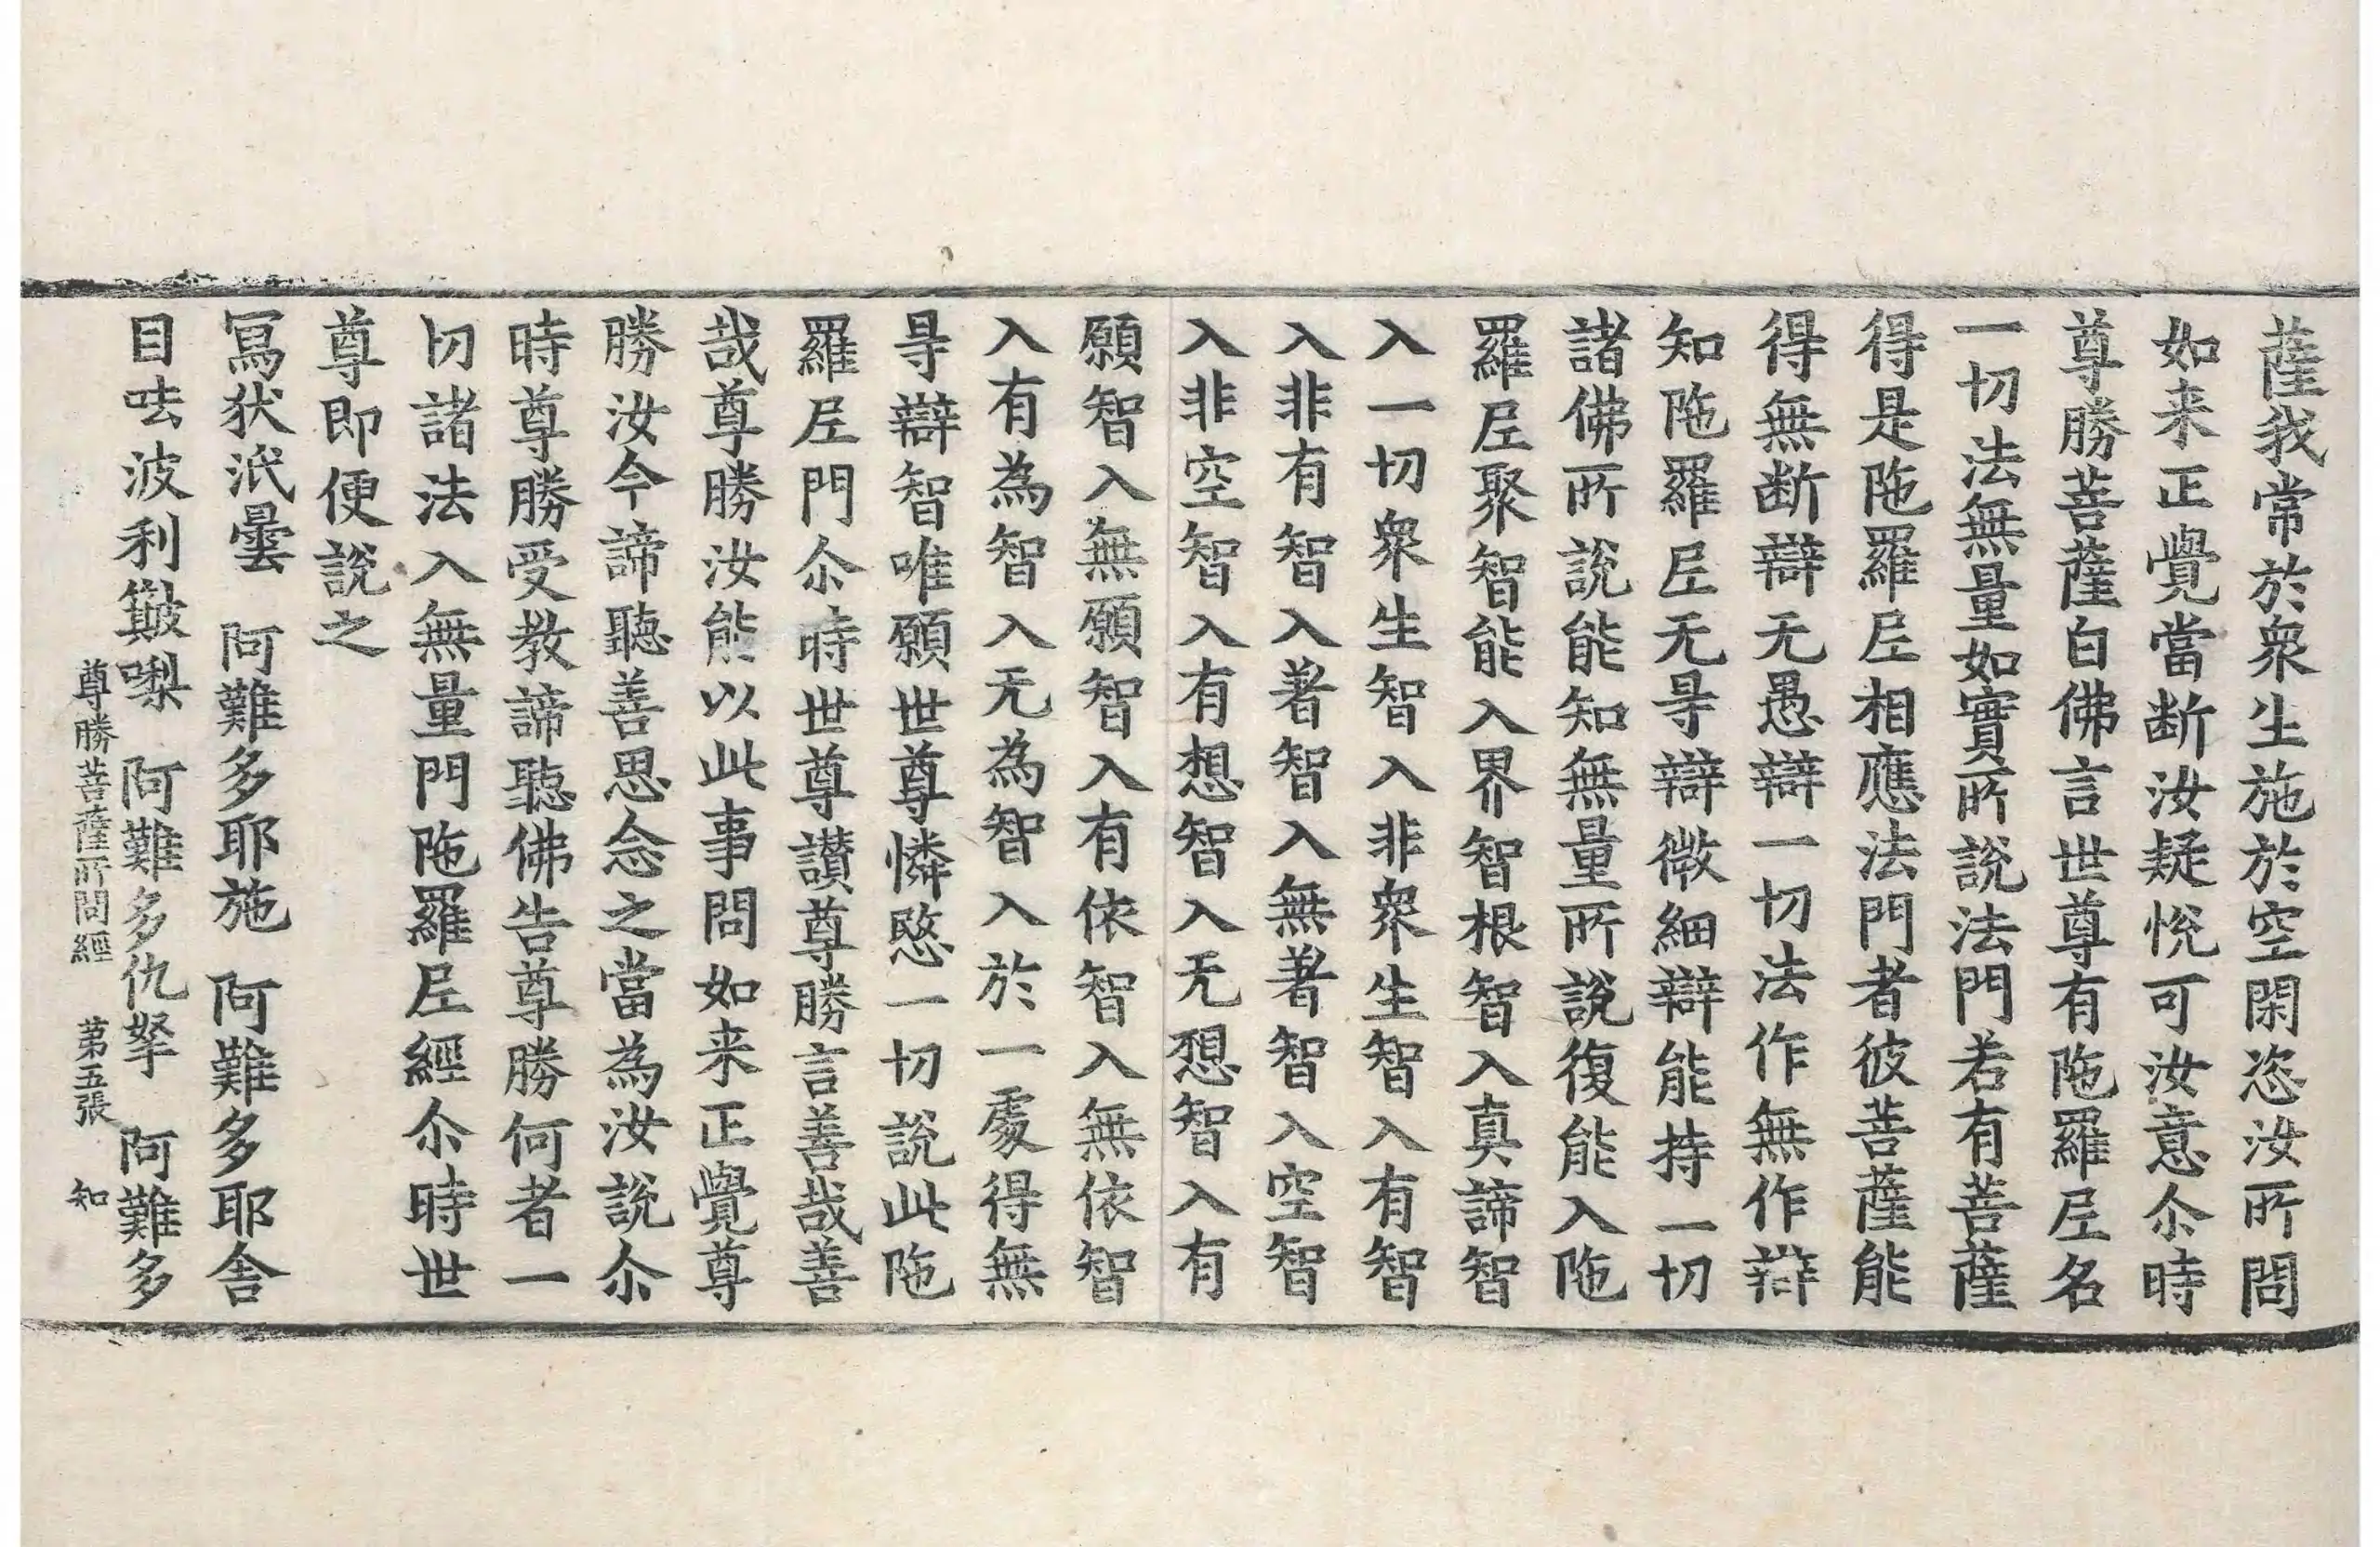 薩我常於衆生施於空閑恣汝所問
如来正覺當断汝疑恱可汝意尒時
尊勝菩薩白佛言世尊有陁羅𡰱名
一切法無量如實所說法門若有菩薩
得是陁羅𡰱相應法門者彼菩薩能
得無断辯无愚辯一切法作無作辯
知陁羅𡰱无㝵辯微細辯能持一切
諸佛所說能知無量所說復能入陁
羅𡰱聚智能入界智根智入真諦智
入一切衆生智入非衆生智入有智
入非有智入著智入無著智入空智
入非空智入有想智入无想智入有
願智入無願智入有依智入無依智
入有為智入无為智入於一處得無
㝵辯智唯願世尊憐愍一切說此陁
羅𡰱門尒時世尊讃尊勝言善哉善
哉尊勝汝能以此事問如来正覺尊
勝汝今諦聽善思念之當為汝說尒
時尊勝受教諦聽佛告尊勝何者一
切諸法入無量門陁羅𡰱經尒時世
尊即便說之
冩狄泜曇 阿難多耶施 阿難多耶舎
目呿波利㘑 阿難多仇拏 阿難多
尊勝菩薩所問經 第五張 知